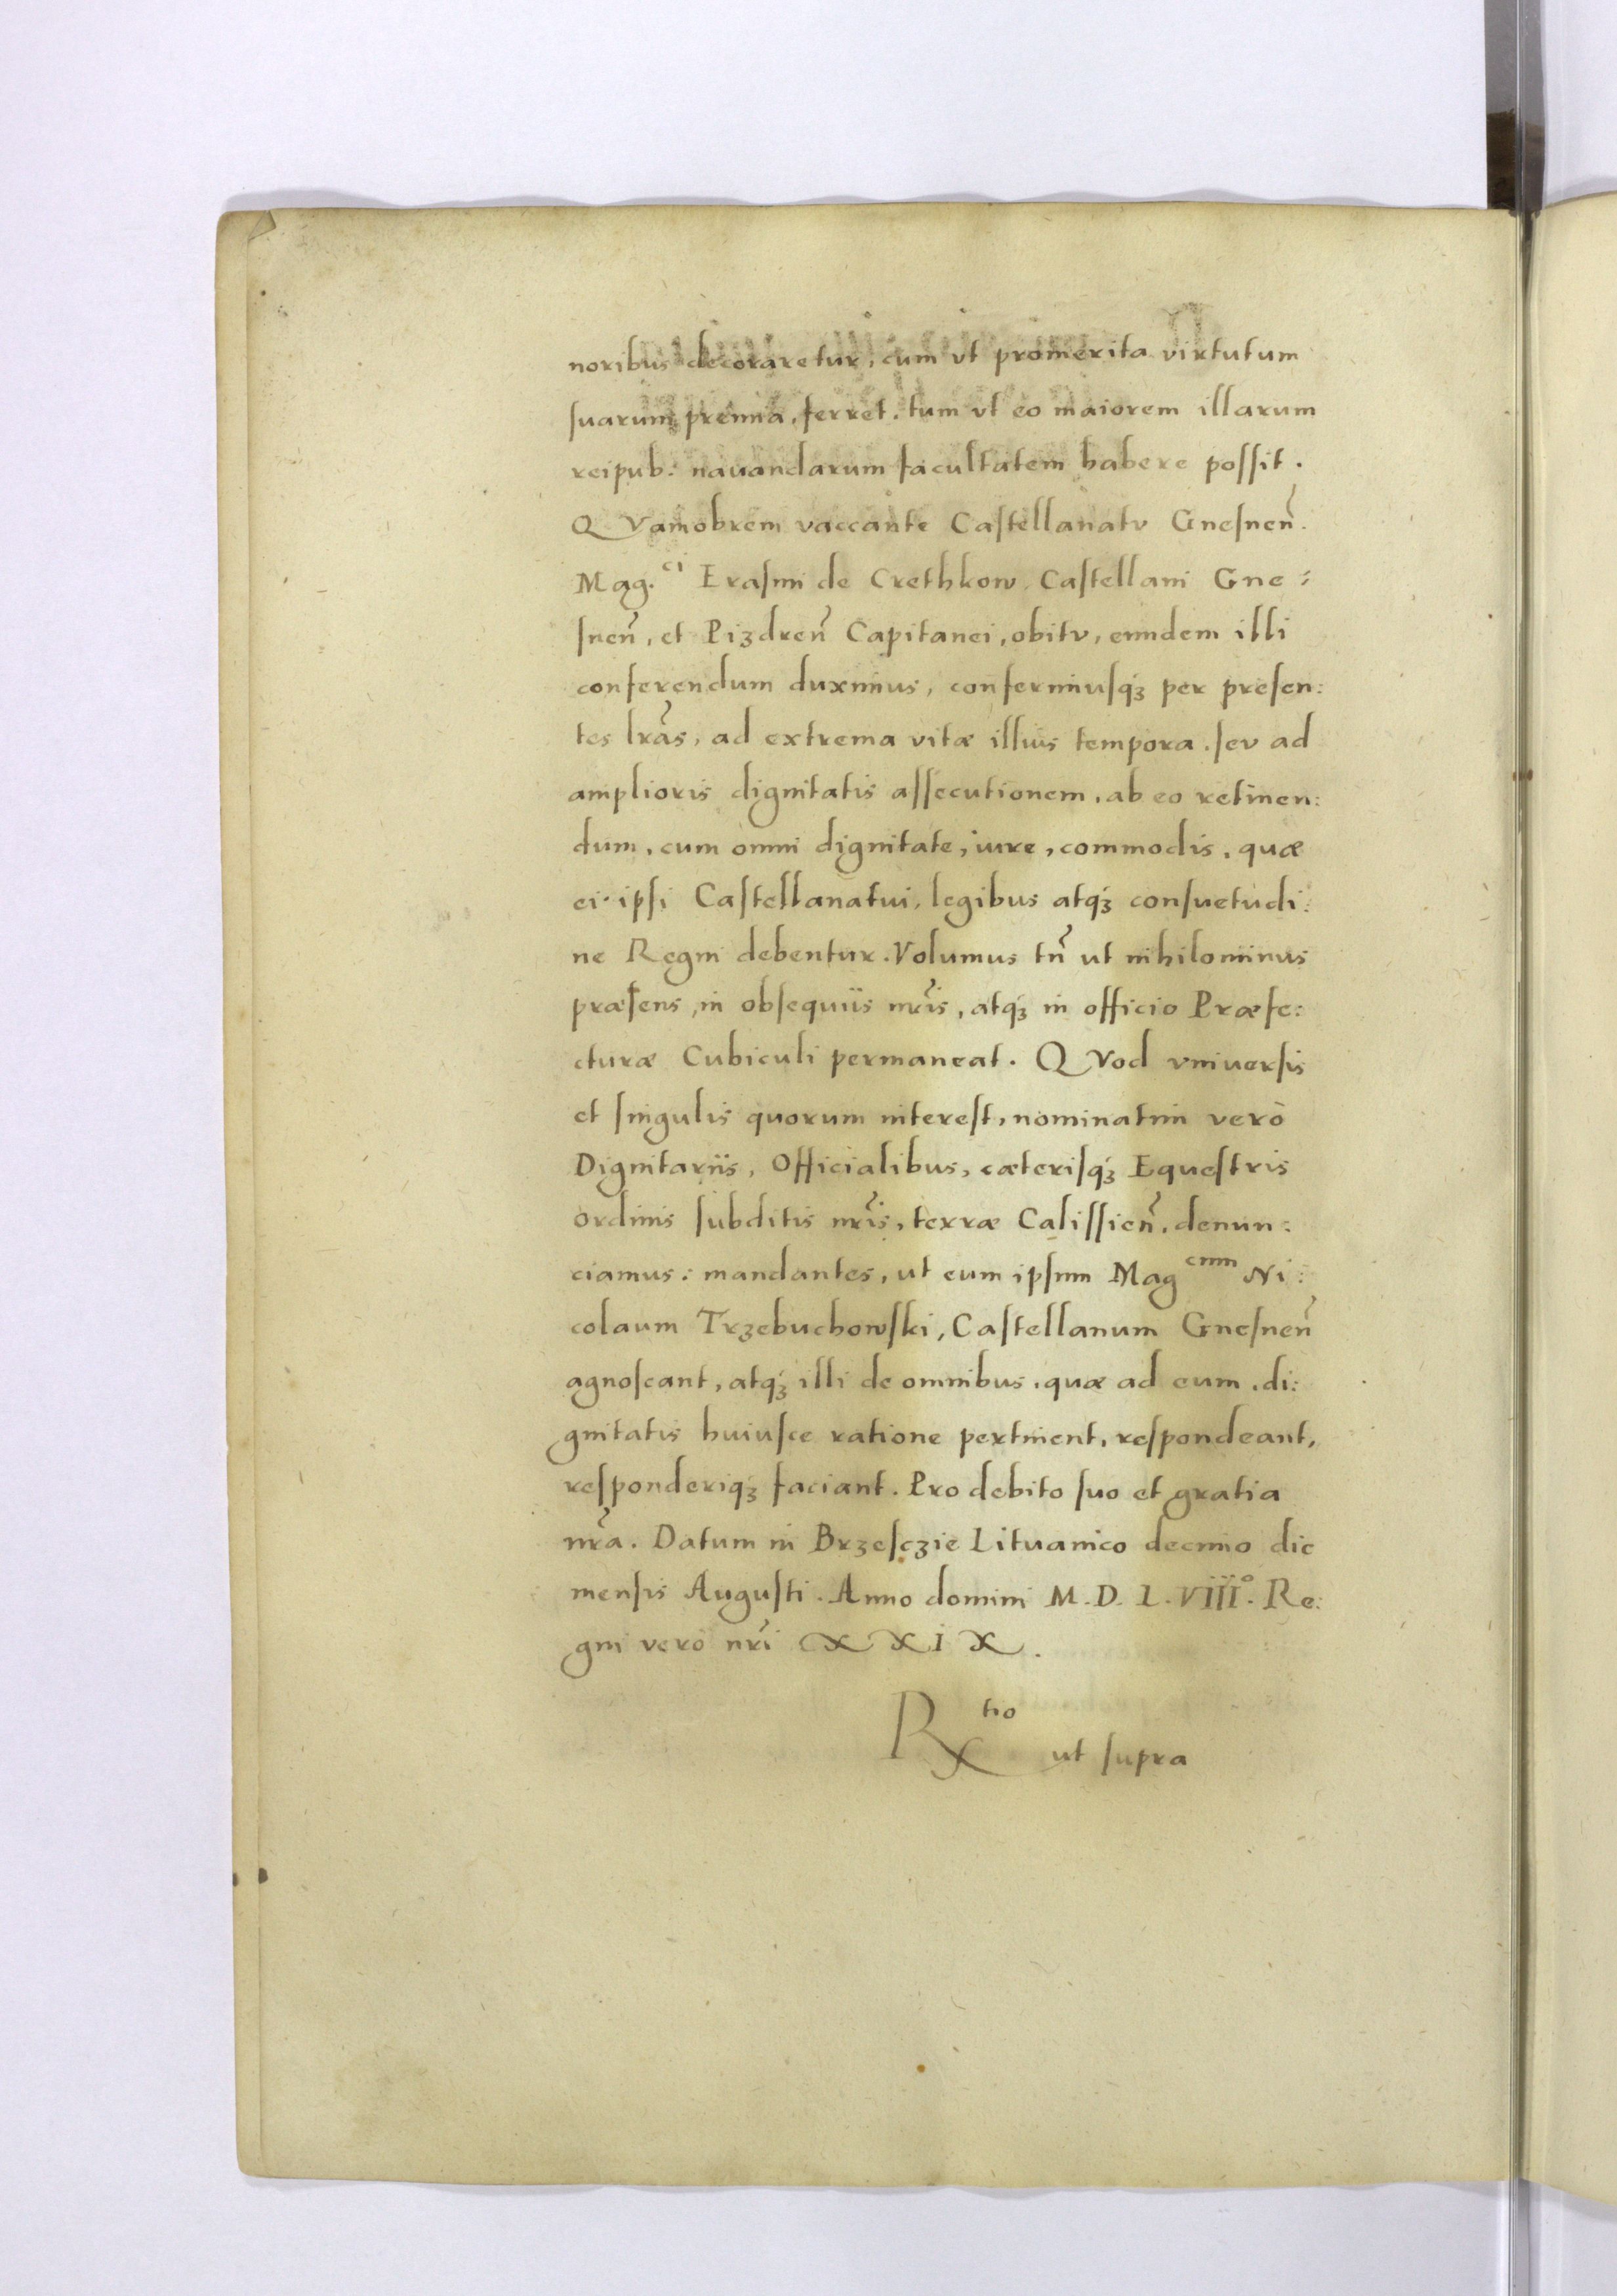 noribus decoraretur, cum vt promerita virtutum
suarum premia, ferret. tum vt eo maiorem illarum
reipub: nauandarum facultatem habere possit.
QVamobrem vaccante Castellanatv Gnesnen̄.
Mag.ci Erasmi de Crethkow, Castellani Gne:
snen̄, et Pizdren̄ Capitanei, obitv, eundem illi
conferendum duximus, conferimusqꝫ per presen:
tes lr̄as, ad extrema vitæ illius tempora. sev ad
amplioris dignitatis assecutionem, ab eo retinen:
dum, cum omni dignitate, iure, commodis, quæ
ei ipsi Castellanatui, legibus atqꝫ consuetudi:
ne Regni debentur. Volumus tn̄ ut nihilominus
præsens, in obsequiis nr̄is, atqꝫ in officio Præfe:
cturæ Cubiculi permaneat. QVod vniuersis
et singulis quorum interest, nominatim verò
Dignitariis, Officialibus, cæterisqꝫ Equestris
ordinis subditis nr̄is, terræ Calissien̄. denun:
ciamus: mandantes, ut eum ipsum Magcum Ni:
colaum Trzebuchowski, Castellanum Gnesnen̄
agnoscant, atqꝫ illi de omnibus, quæ ad eum, di:
gnitatis huiusce ratione pertinent, respondeant,
responderiqꝫ faciant. Pro debito suo et gratia
nr̄a. Datum in Brzesczie Lituanico decimo die
mensis Augusti. Anno domini M.D.L.VIIIº. Re:
gni verò nr̄i XXIX.
Rtio ut supra